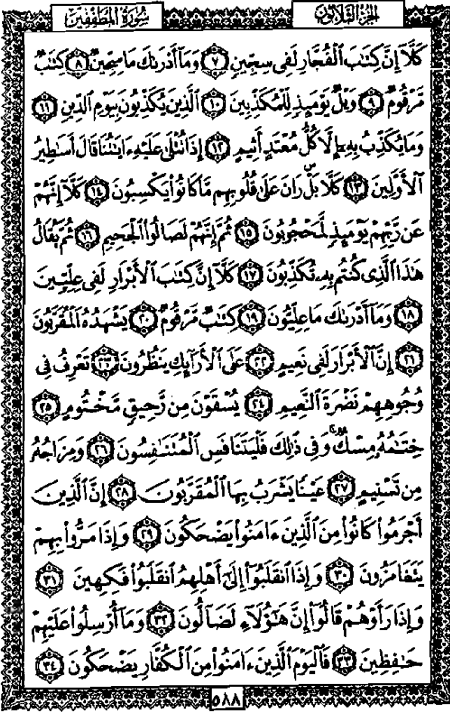 سُورَةُ المُطَفِّفِينَ الجُزْءُ الثَّلَاثُونَ
كَلَّآ إِنَّ كِتَٰبَ ٱلْفُجَّارِ لَفِى سِجِّينٍ ٧ وَمَآ أَدْرَىٰكَ مَا سِجِّينٌ ٨ كِتَٰبٌ
مَّرْقُومٌ ٩ وَيْلٌ يَوْمَئِذٍ لِّلْمُكَذِّبِينَ ١٠ ٱلَّذِينَ يُكَذِّبُونَ بِيَوْمِ ٱلدِّينِ ١١
وَمَا يُكَذِّبُ بِهِۦٓ إِلَّا كُلُّ مُعْتَدٍ أَثِيمٍ ١٢ إِذَا تُتْلَىٰ عَلَيْهِ ءَايَٰتُنَا قَالَ أَسَٰطِيرُ
ٱلْأَوَّلِينَ ١٣ كَلَّا بَلْ رَانَ عَلَىٰ قُلُوبِهِم مَّا كَانُوا۟ يَكْسِبُونَ ١٤ كَلَّآ إِنَّهُمْ
عَن رَّبِّهِمْ يَوْمَئِذٍ لَّمَحْجُوبُونَ ١٥ ثُمَّ إِنَّهُمْ لَصَالُوا۟ ٱلْجَحِيمِ ١٦ ثُمَّ يُقَالُ
هَٰذَا ٱلَّذِى كُنتُم بِهِۦ تُكَذِّبُونَ ١٧ كَلَّآ إِنَّ كِتَٰبَ ٱلْأَبْرَارِ لَفِى عِلِّيِّينَ
١٨ وَمَآ أَدْرَىٰكَ مَا عِلِّيُّونَ ١٩ كِتَٰبٌ مَّرْقُومٌ ٢٠ يَشْهَدُهُ ٱلْمُقَرَّبُونَ
٢١ إِنَّ ٱلْأَبْرَارَ لَفِى نَعِيمٍ ٢٢ عَلَى ٱلْأَرَآئِكِ يَنظُرُونَ ٢٣ تَعْرِفُ فِى
وُجُوهِهِمْ نَضْرَةَ ٱلنَّعِيمِ ٢٤ يُسْقَوْنَ مِن رَّحِيقٍ مَّخْتُومٍ ٢٥
خِتَٰمُهُۥ مِسْكٌ وَفِى ذَٰلِكَ فَلْيَتَنَافَسِ ٱلْمُتَنَٰفِسُونَ ٢٦ وَمِزَاجُهُۥ
مِن تَسْنِيمٍ ٢٧ عَيْنًا يَشْرَبُ بِهَا ٱلْمُقَرَّبُونَ ٢٨ إِنَّ ٱلَّذِينَ
أَجْرَمُوا۟ كَانُوا۟ مِنَ ٱلَّذِينَ ءَامَنُوا۟ يَضْحَكُونَ ٢٩ وَإِذَا مَرُّوا۟ بِهِمْ
يَتَغَامَزُونَ ٣٠ وَإِذَا ٱنقَلَبُوٓا۟ إِلَىٰٓ أَهْلِهِمُ ٱنقَلَبُوا۟ فَكِهِينَ ٣١
وَإِذَا رَأَوْهُمْ قَالُوٓا۟ إِنَّ هَٰٓؤُلَآءِ لَضَآلُّونَ ٣٢ وَمَآ أُرْسِلُوا۟ عَلَيْهِمْ
حَٰفِظِينَ ٣٣ فَٱلْيَوْمَ ٱلَّذِينَ ءَامَنُوا۟ مِنَ ٱلْكُفَّارِ يَضْحَكُونَ ٣٤
٥٨٨